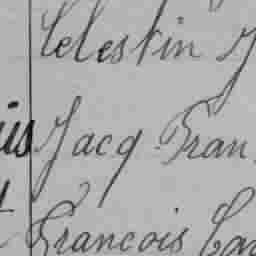 Celestin J
is Jacq. Fran
François Ca